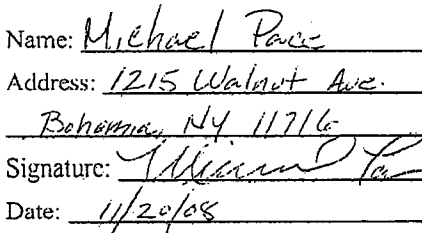 Name: Michael Pace
Address: 1215 Walnut Ave.
Bohemia, NY 11716
Signature:
Date: 11/20/08